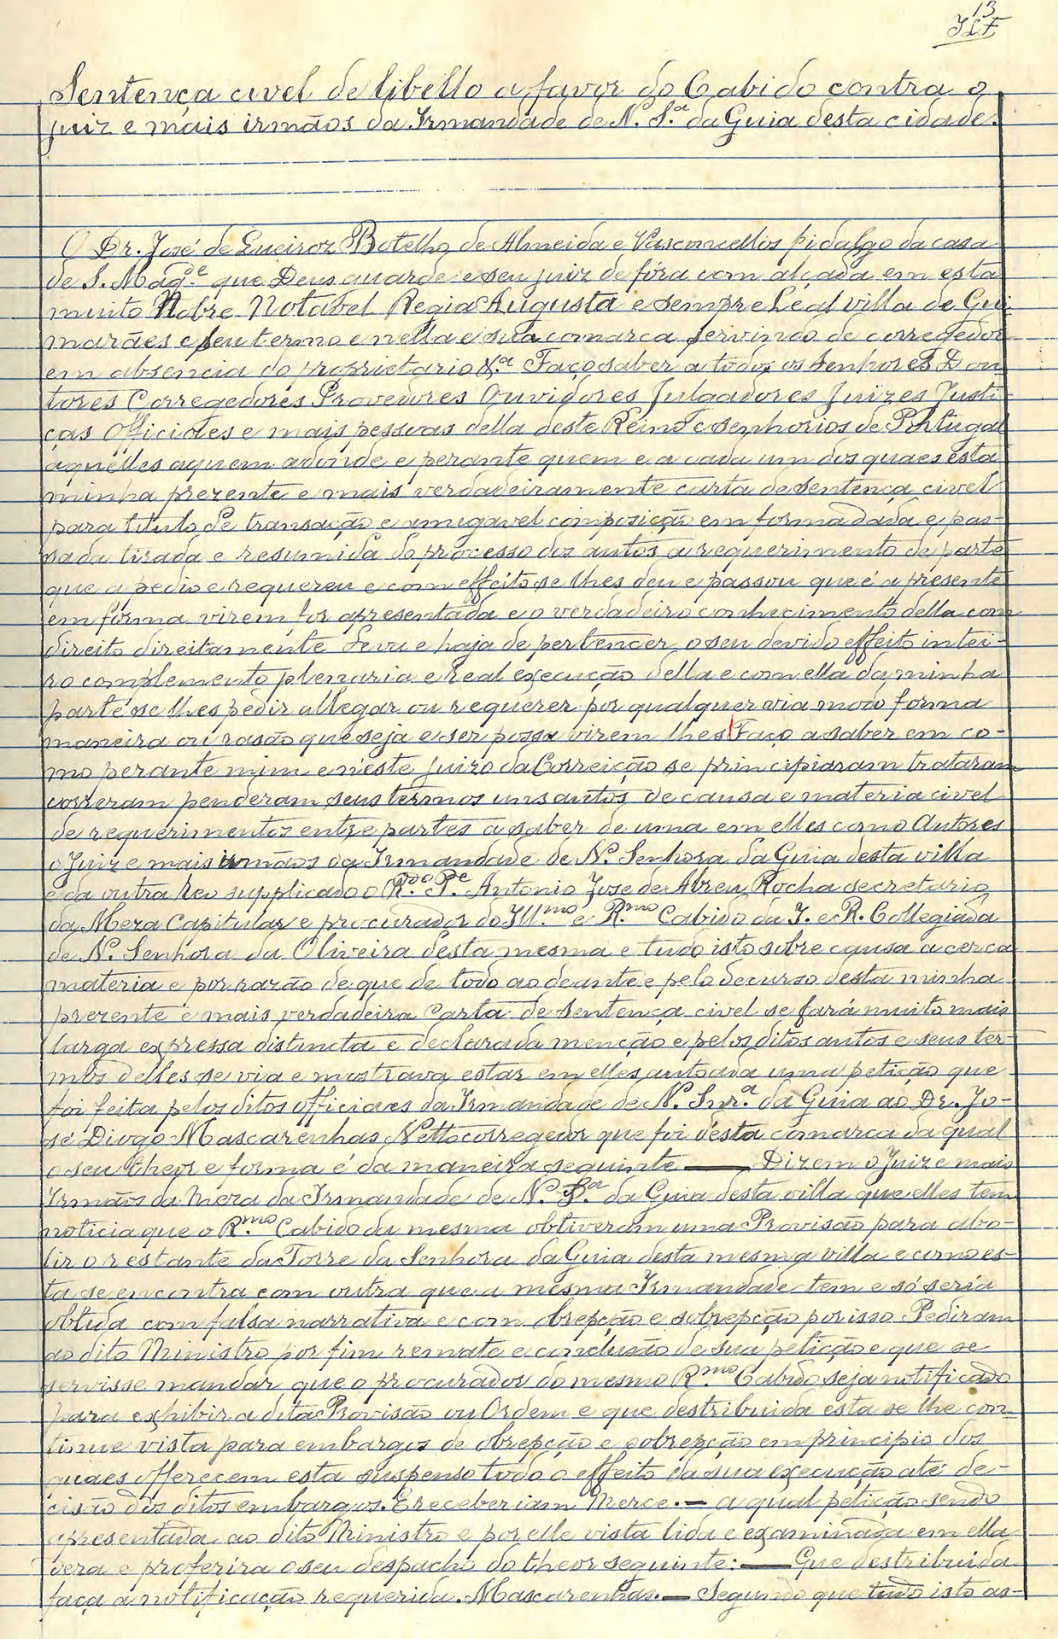 13
Sentença civel de libello a favor do Cabido contra o
juiz e mais irmãos da Irmandade de N. S.ª da Guia desta cidade.
O Dr. José de Queiroz Botelho de Almeida e Vasconcellos fidalgo da casa
de S. Mag.e que Deus guarde e seu juiz de fóra com alçada em esta
muito Nobre Notavel Regia Augusta e sempre Leal villa de Gui
marães e seu termo e nella e sua comarca servindo de corregedor
em absencia do proprietario &.ª Faço saber a todos os Senhores Dou
tores Corregedores Provedores Ouvidores Julgadores Juizes Justi-
ças Officiaes e mais pessoas della deste Reino e senhorios de Portugal
áquelles aquem adonde e perante quem e a cada um dos quaes esta
minha prezente e mais verdadeiramente carta de sentença civel
para titulo de transação e amigavel composição em forma dada e pas-
sada tirada e resumida do processo dos autos a requerimento de parte
que a pedio e requereu e com effeito se lhes deu e passou que é a presente
em fórma virem for apresentada e o verdadeiro conhecimento della com
direito direitamente deva e haja de pertencer o seu devido effeito intei-
ro complemento plenaria e real execução della e com ella da minha
parte se lhes pedir allegar ou requerer por qualquer via modo forma
maneira ou rasão que seja e ser possa virem lhes Faço a saber em co-
mo perante mim e n'este Juizo da Correição se principiaram trataram
correram penderam seus termos uns autos de causa e materia civel
de requerimentos entre partes a saber de uma em elles como Autores
o Juiz e mais irmãos da Irmandade de N. Senhora da Guia desta villa
e da outra reo supplicado o R.do P.e Antonio Jose de Abreu Rocha secretario
da Meza Capitular e procurador do Ill.mo e R.mo Cabido da I. e R. Collegiada
de N. Senhora da Oliveira desta mesma e tudo isto sobre causa a cerca
materia e por razão de que de todo ao deante e pelo decurso desta minha
prezente e mais verdadeira Carta de sentença civel se fará muito mais
larga expressa distincta e declarada menção e pelos ditos autos e seus ter-
mos delles se via e mostrava estar em elles autoada uma petição que
foi feita pelos ditos officiaes da Irmandade de N. Snr.ª da Guia ao Dr. Jo-
sé Diogo Mascarenhas Netto corregedor que foi désta comarca da qual
o seu theor e forma é da maneira seguinte — Dizem o Juiz e mais
Irmãos da Meza da Irmandade de N. S.ª da Guia desta villa que elles tem
noticia que o R.mo Cabido da mesma obtiveram uma Provisão para abo-
lir o restante da Torre da Senhora da Guia desta mesma villa e como es-
ta se encontra com outra que a mesma Irmandade tem e só seria
obtida com falsa narrativa e com obrepção e subrepção por isso Pediram
ao dito Ministro por fim remate e conclusão de sua petição e que se
servisse mandar que o procurador do mesmo R.mo Cabido seja notificado
para exhibir a dita Provisão ou Ordem e que destribuida esta se lhe con-
tinue vista para embargos de obrepção e sobrepção em principio dos
quaes offerecem esta suspenso todo o effeito da sua execução até de-
cisão dos ditos embargos. E receberiam Merce. — a qual petição sendo
apresentada ao dito Ministro e por elle vista lida e examinada em ella
dera e proferira o seu despacho do theor seguinte: — Que destribuida
faça a notificação requerida. Mascarenhas. — Segundo que tudo isto as-